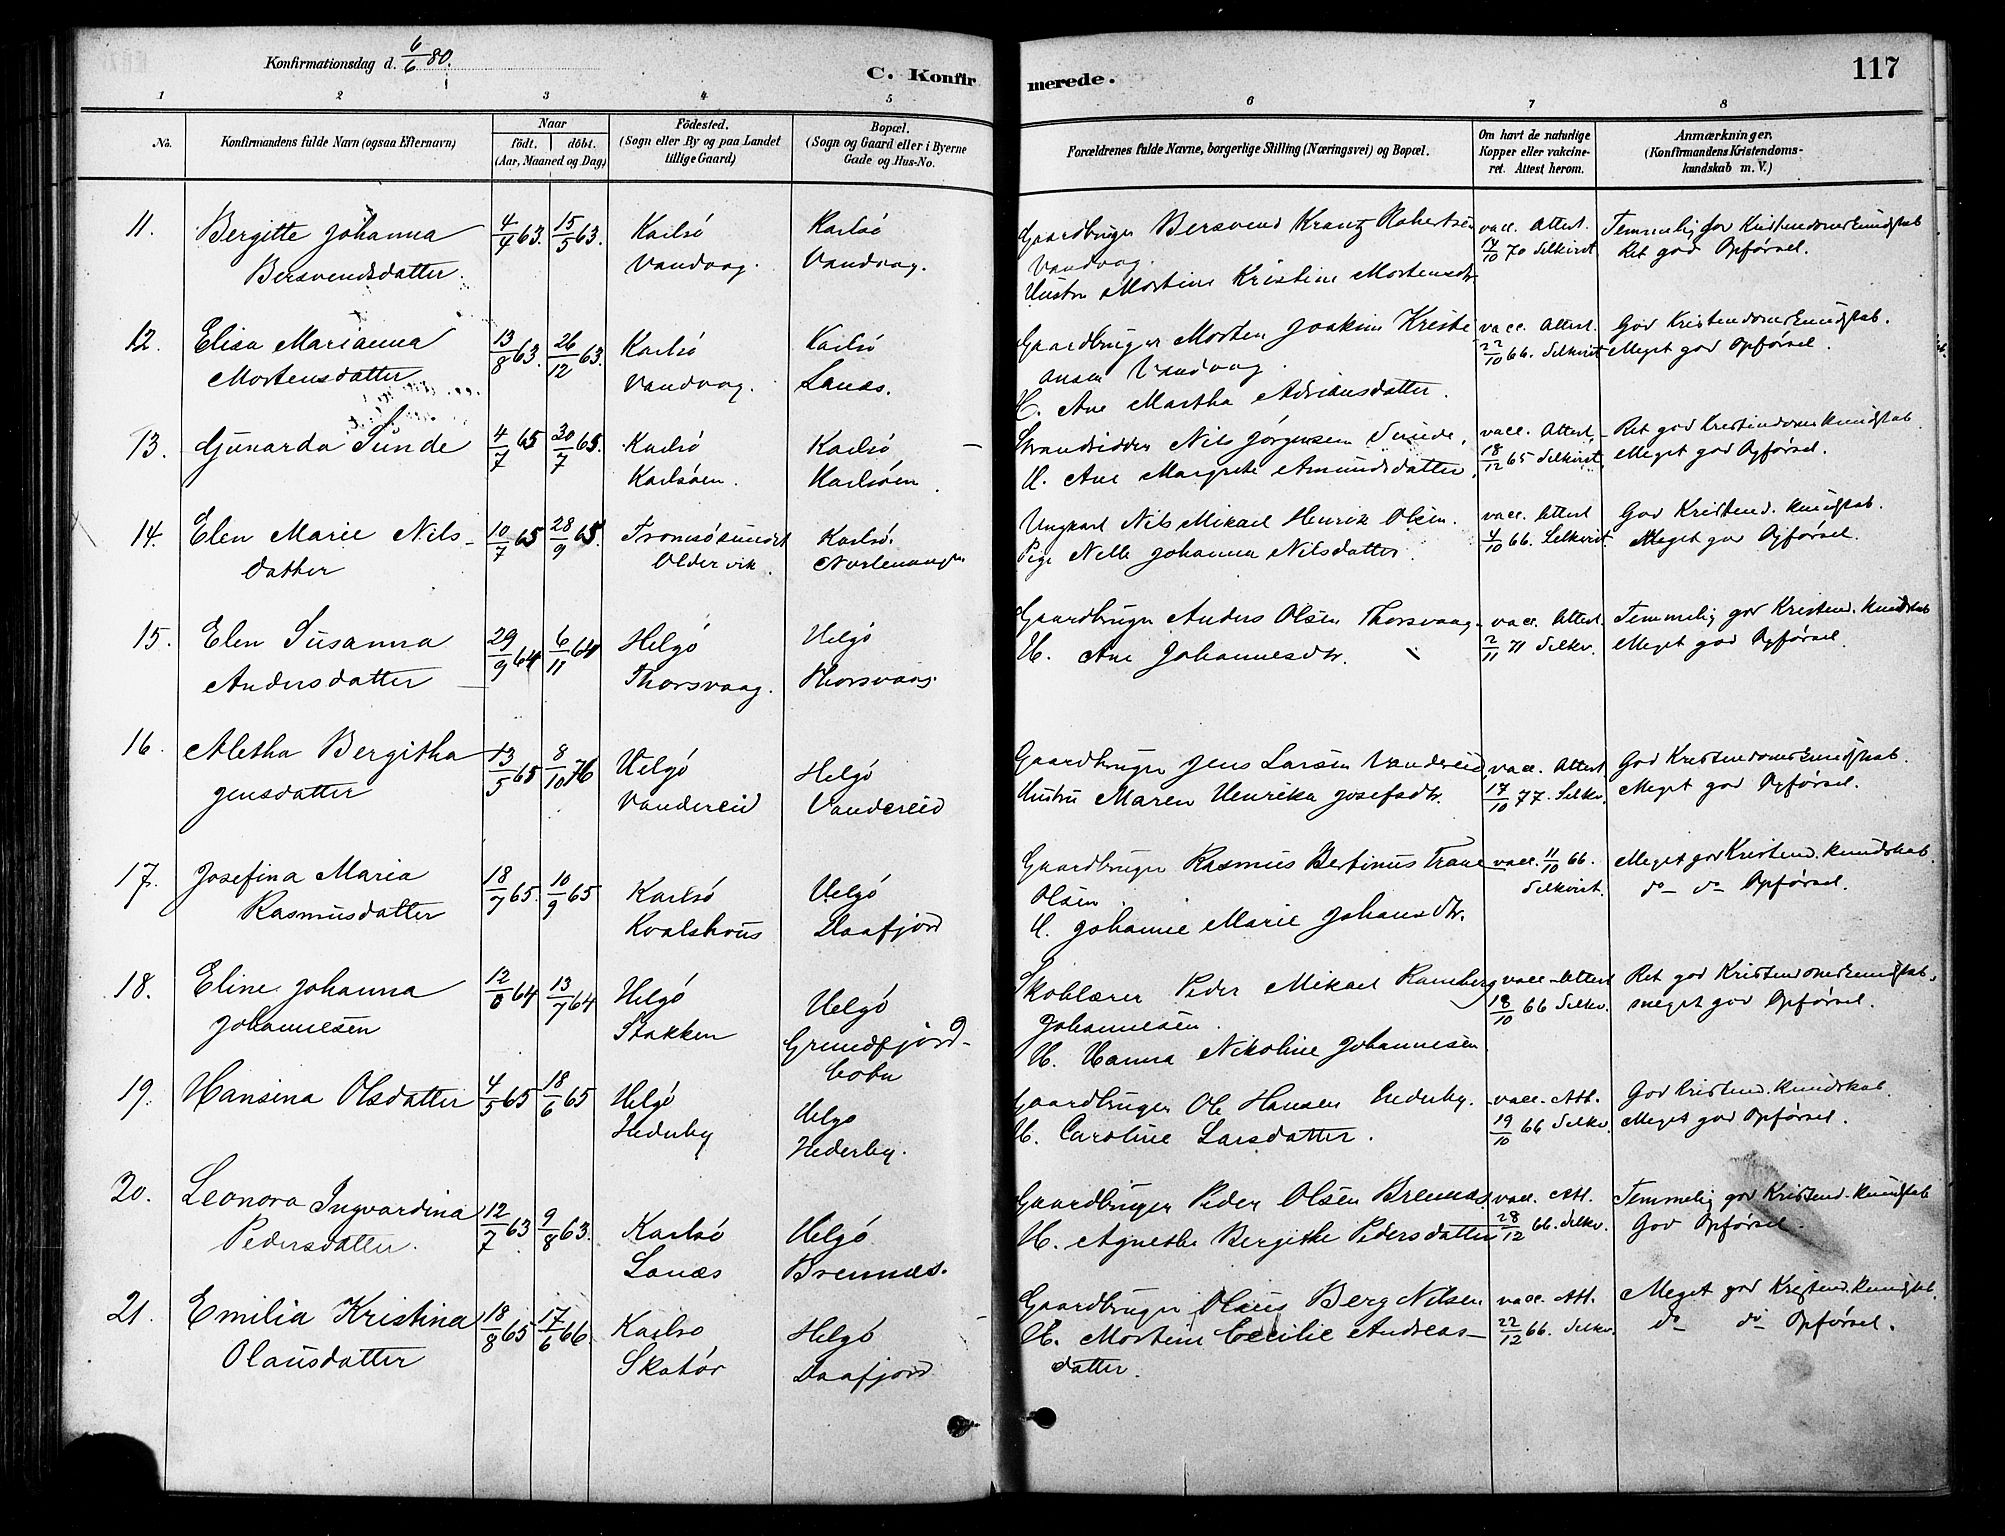 Konfirmationsdag d. 6/6 80.
C. Konfirmerede.
117
1 2 3 4 5 6 7 8
No.
Konfirmandens fulde Navn (ogsaa Efternavn)
Naar
födt. döbt.
(Aar, Maaned og Dag)
Födested.
(Sogn eller By og paa Landet
tillige Gaard)
Bopæl.
(Sogn og Gaard eller i Byerne
Gade og Hus-No.
Forældrenes fulde Navne, borgerlige Stilling (Næringsvei) og Bopæl.
Om havt de naturlige
Kopper eller vakcine-
ret. Attest herom.
Anmærkninger.
(Konfirmandens Kristendoms-
kundskab m. V.)
11. Bergitte Johanna 4/4 63. 15/5 63. Karlsö Karlsö Gaardbruger Bersvend Krantz vacc. Attest. Temmelig god Kristendomskundskab
Bersvendsdatter. Vandvag. Vandvag. Vandvag. 70 Selkvist Ret god Opførsel.
Hustru Mortine Kristine Mortensdtr.
12. Elisa Marianna 13/8 63. 26/12 63. Karlsö Karlsö Gaardbruger Morten Joakim Kristi vacc. Attest. God Kristendomskundskab.
Mortensdatter Vandvag. Lanæs. ansen Vandvag. 22/10 66. Selkvist Meget god Opførsel.
H. Ane Martha Adriansdatter.
13. Gunarda Sunde 4/7 65 30/7 65. Karlsö Karlsö Strandsidder Nils Jørgensen Sunde, vacc. Attest Ret god Kristendomskundskab
Karlsöen. Karlsöen. H. Ane Margrete Amundsdatter 18/12 65 Selkvist. Meget god Opførsel.
14. Elen Marie Nils- 10/7 65 28/9 65. Tromsøsundet Karlsö. Ungkarl Nils Mikael Henrik Olsen. vacc. Attest God Kristend. kundskab.
datter Oldervik. Pige Nelle Johanna Nilsdatter. 4/10 66. Selkvist. Meget god Opførsel.
15. Elen Susanna 29/9 64 6/11 64 Helgö Helgö Gaardbruger Anders Olsen Thorsvaag. vacc. Attest. Temmelig god Kristend. kundskab
Andersdatter Thorsvaag. Thorsvaag. H. Ane Johannesdtr. 2/11 71 Selkv. Meget god Opførsel.
16. Aletha Bergitha 13/5 65 8/10 76 Helgö Helgö Gaardbruger Jens Larsen Vandereid, vacc. Attest God Kristendomskundskab.
Jensdatter Vandereid Vandereid Hustru Maren Henrika Josefsdtr. 17/10 77. Selkv. Meget god Opførsel.
17. Josefina Maria 18/7 65. 10/9 65 Karlsö Helgö Gaardbruger Rasmus Bertinus Trane vacc. 11/10 66. Meget god Kristend. kundskab.
Rasmusdatter Kvalshous Daafjord Olsen. Selkvist. do do Opførsel.
H. Johanne Marie Johansdtr.
18. Eline Johanna 64 13/7 64 Helgö Helgö Skolelærer Peder Mikael Ramberg vacc. Attest Ret god Kristendomskundskab.
Johannesen Stakken Grundfjord- Johannesen. 18/10 66 Selkv. meget god Opførsel.
botn H. Hanna Nikoline Johannesen.
19. Hansina Olsdatter 4/5 65 18/6 65 Helgö Helgö Gaardbruger Ole Hansen Hederby. vacc. Att. God Kristend. kundskab.
Hederby Hederby. H. Caroline Larsdatter. 19/10 66 Selkv. Meget god Opførsel.
20. Leonora Ingvardina 12/7 63 9/8 63. Karlsö Helgö Gaardbruger Peder Olsen Brennæs. vacc. Att. Temmelig god Kristend. kundskab
Pedersdatter. Lanæs Brennæs. H. Agnethe Bergithe Pedersdatter 28/12 66. Selkv. God Opførsel.
21. Emilia Kristina 18/8 65 17/6 66. Karlsö Helgö Gaardbruger Olaus Berg Nilsen vacc. Att. Meget god Kristend. kundskab.
Olausdatter Skatör Daafjord H. Mortine Cecilie Andreas- 22/12 66. Selkv. do do Opførsel.
datter.